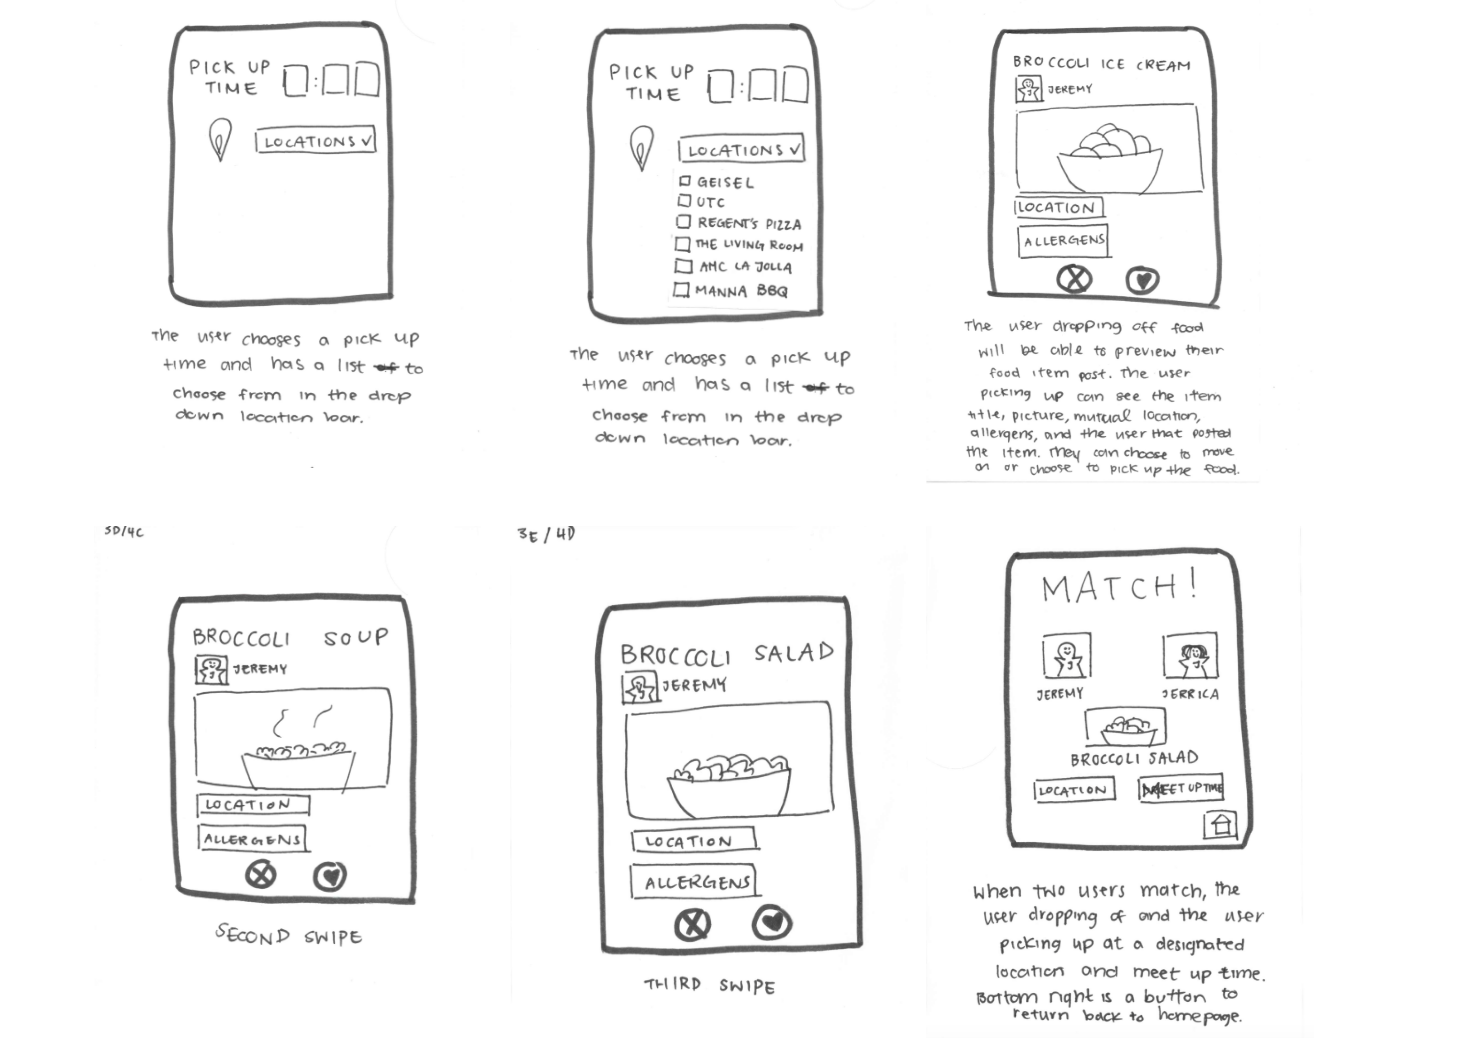 PICK UP
TIME
LOCATIONS
The user chooses a pick up
time and has a list of to
choose from in the drop
down location bar.
PICK UP
TIME
LOCATIONS
GEISEL
UTC
REGENT'S PIZZA
THE LIVING ROOM
AMC LA JOLLA
MANNA BBQ
The user chooses a pick up
time and has a list of to
choose from in the drop
down location bar.
BROCCOLI ICE CREAM
JEREMY
LOCATION
ALLERGENS
X
The user dropping off food
will be able to preview their
food item post. The user
picking up can see the item
title, picture, mutual location,
allergens, and the user that posted
the item. They can choose to move
on or choose to pick up the food.
3D/4C
BROCCOLI SOUP
J
JEREMY
LOCATION
ALLERGENS
X
SECOND SWIPE
3E/4D
BROCCOLI SALAD
J
JEREMY
LOCATION
ALLERGENS
X
THIRD SWIPE
MATCH!
J
J
JEREMY
JERRICA
BROCCOLI SALAD
LOCATION
MEET UP TIME
When two users match, the
user dropping of and the user
picking up at a designated
location and meet up time.
Bottom right is a button to
return back to homepage.